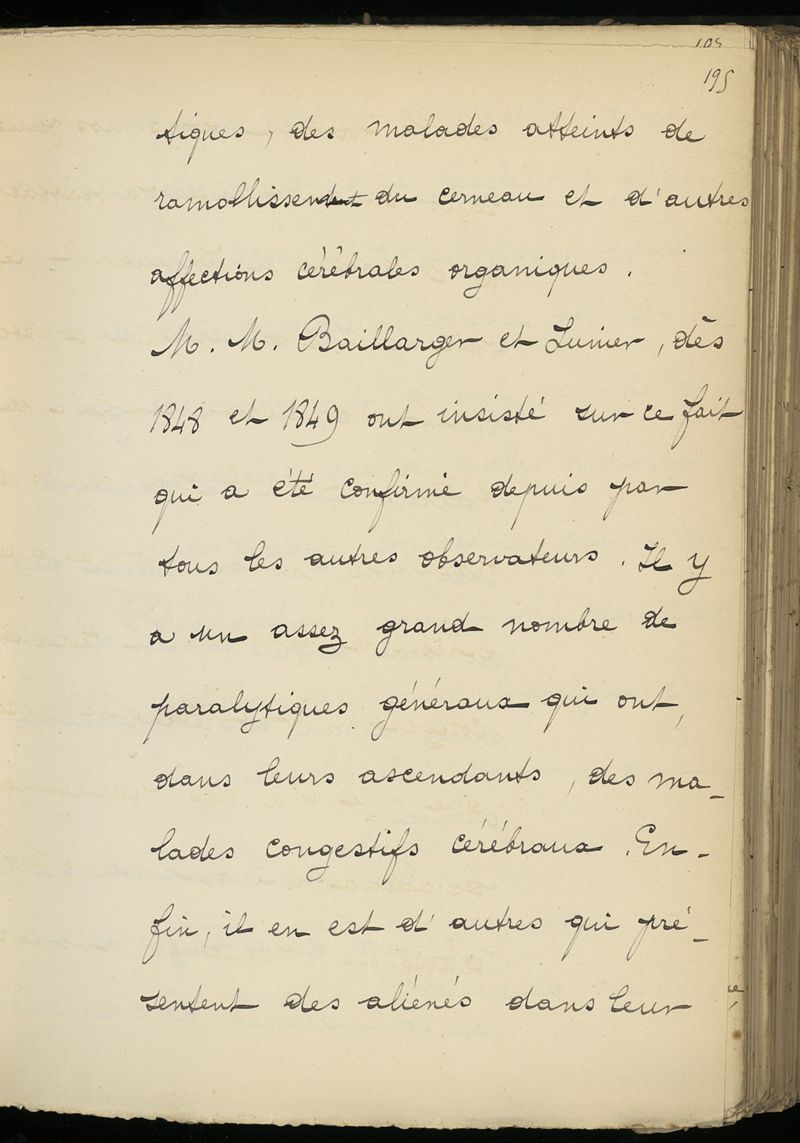 195
tiques, des malades atteints de
ramollissement du cerveau et d'autres
affections cérébrales organiques.
M. M. Baillarger et Lunier, dès
1848 et 1849 ont insisté sur ce fait
qui a été confirmé depuis par
tous les autres observateurs. Il y
a un assez grand nombre de
paralytiques généraux qui ont,
dans leurs ascendants, des ma-
lades congestifs cérébraux. En-
fin, il en est d'autres qui pré-
sentent des aliénés dans leur